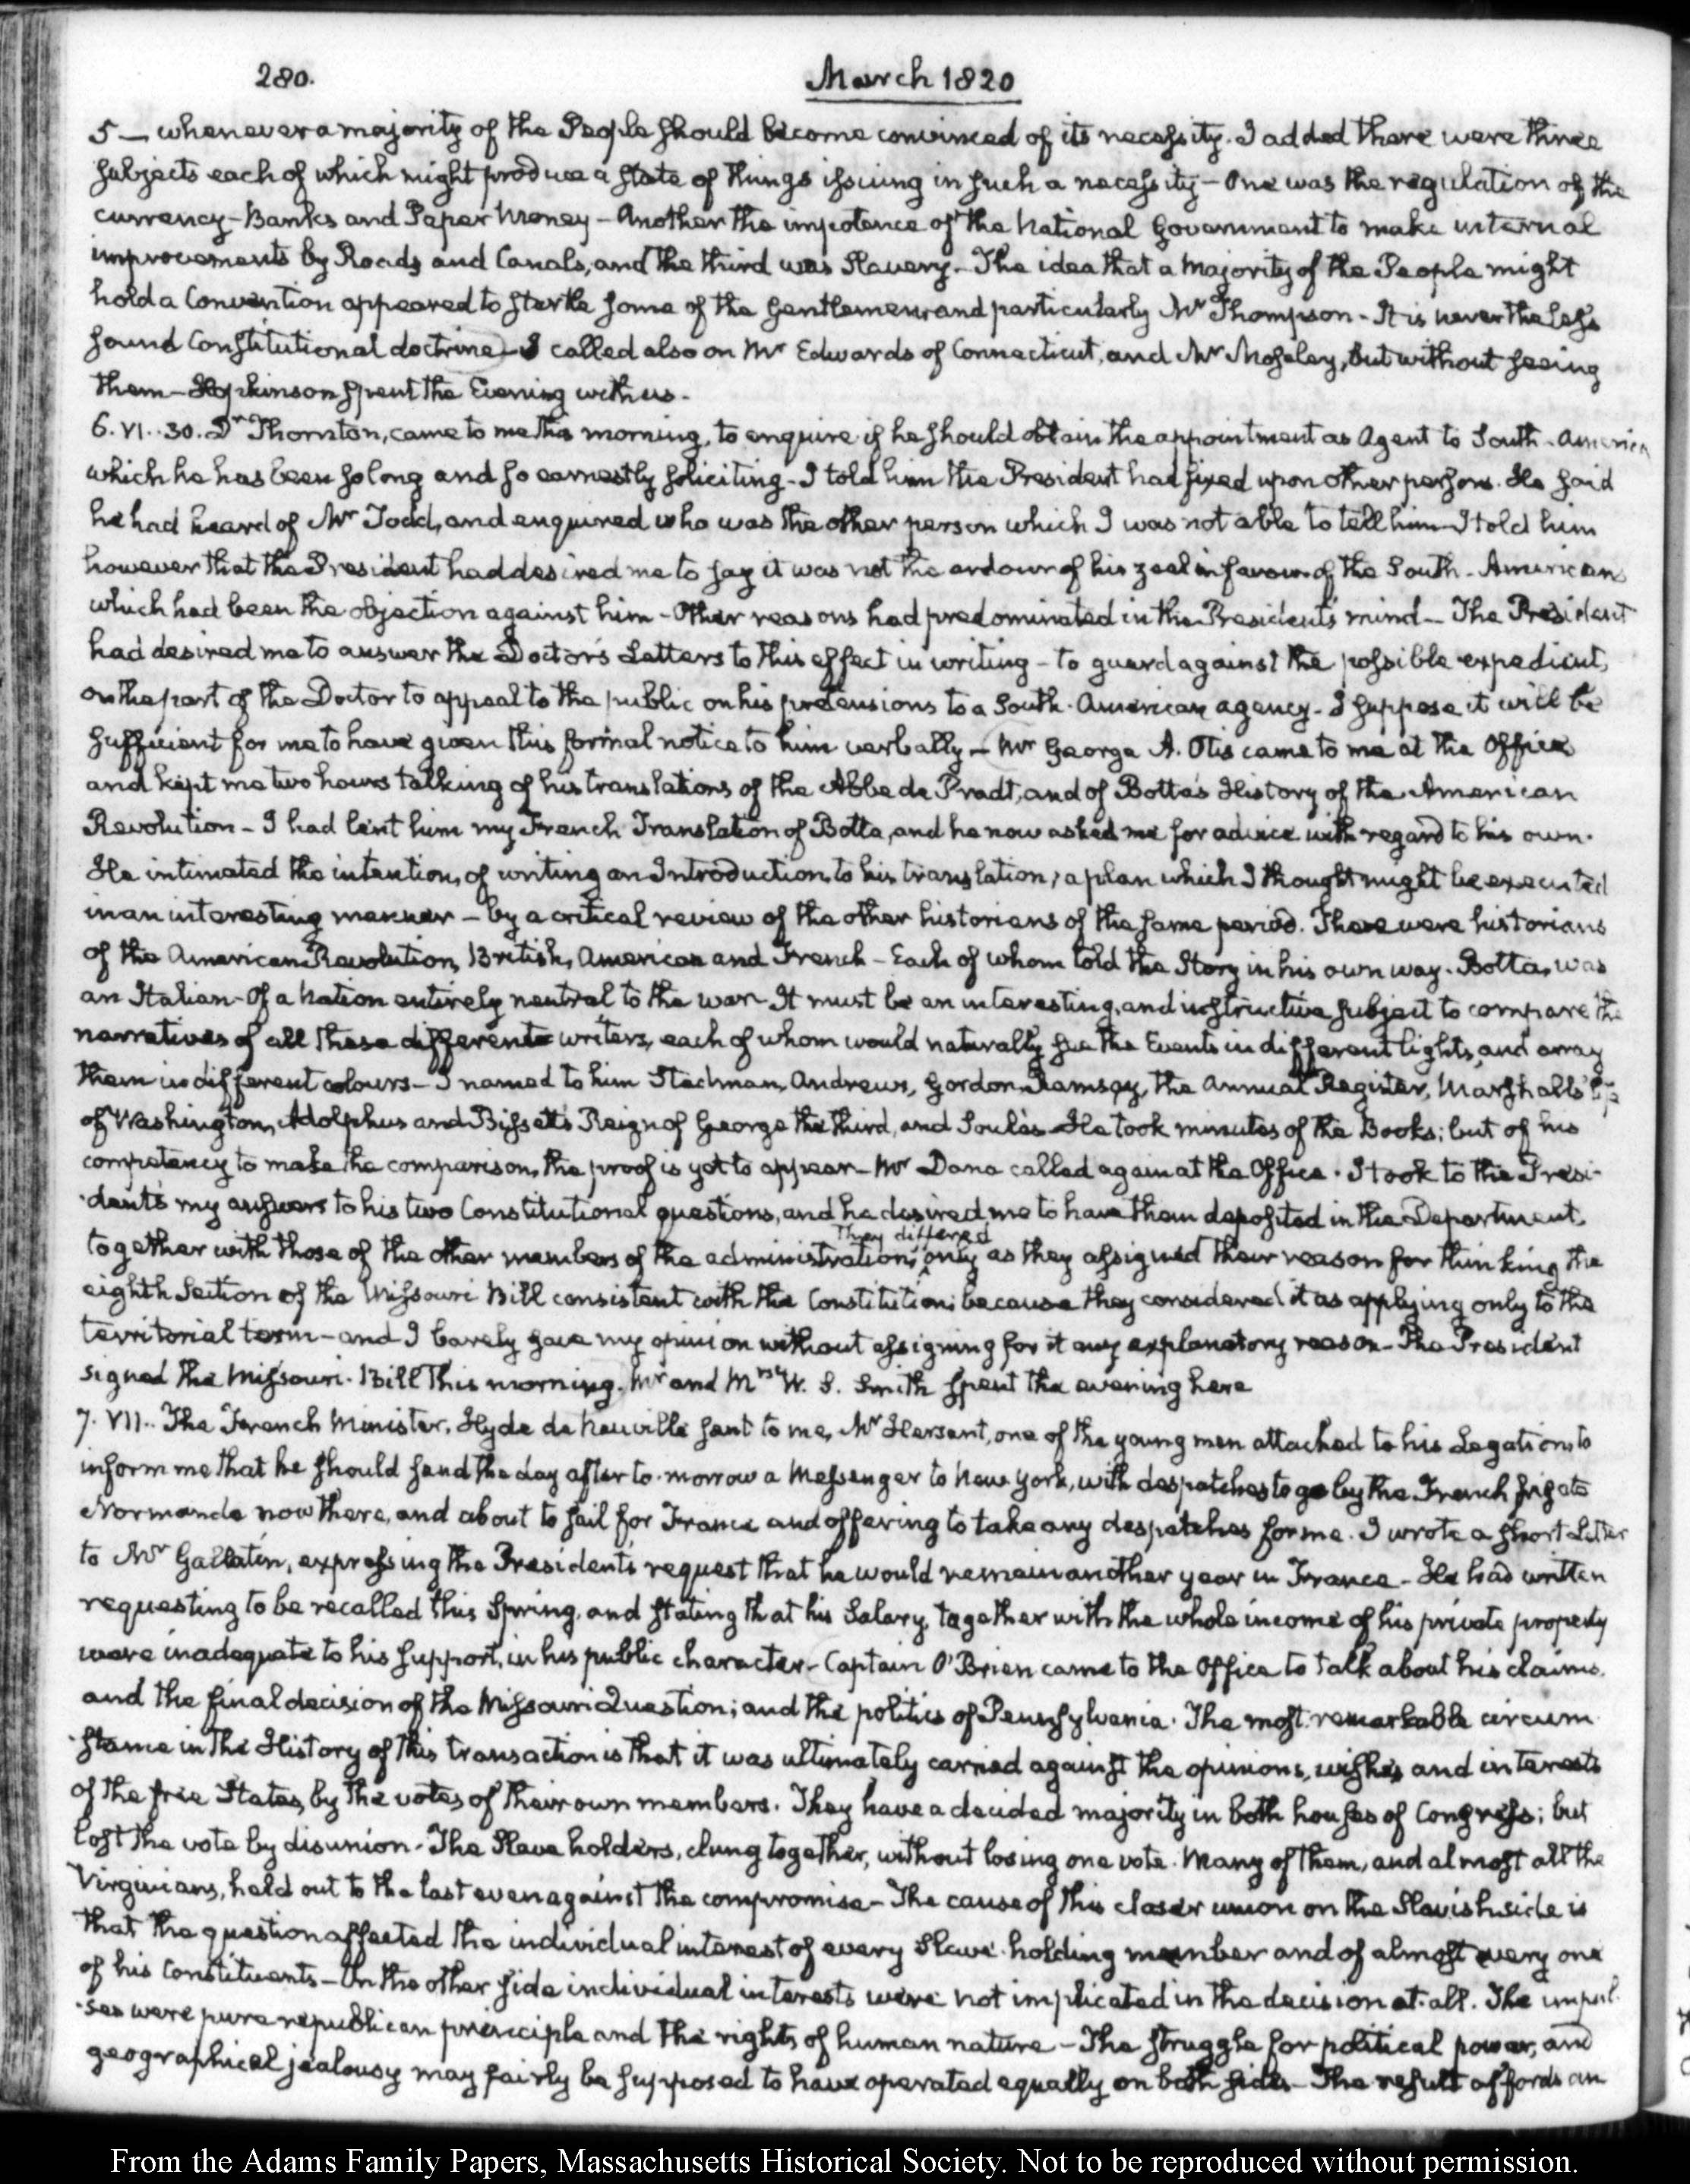 280.
March 1820
5 — whenever a majority of the People should become convinced of its necessity. I added there were three
subjects each of which might produce a state of things issuing in such a necessity — One was the regulation of the
currency — Banks and Paper Money — Another the impotence of the National Government to make internal
improvements by Roads and Canals, and the third was Slavery — The idea that a Majority of the People might
hold a Convention appeared to startle some of the Gentlemen and particularly Mr Thompson — It is nevertheless
sound Constitutional doctrine — I called also on Mr Edwards of Connecticut, and Mr Moseley, but without seeing
them — Hopkinson spent the Evening with us.
6. VI..30. Dr Thornton, came to me this morning, to enquire if he should obtain the appointment as Agent to South-America
which he has been so long and so earnestly soliciting — I told him the President had fixed upon other persons. He said
he had heard of Mr Todd, and enquired who was the other person which I was not able to tell him — I told him
however that the President had desired me to say it was not the ardour of his zeal in favour of the South-Americans
which had been the objection against him — Other reasons had predominated in the President's mind — The President
had desired me to answer the Doctor's Letters to this effect in writing — to guard against the possible expedient,
on the part of the Doctor to appeal to the public on his pretensions to a South-American agency — I suppose it will be
sufficient for me to have given this formal notice to him verbally — Mr George A. Otis came to me at the Office
and kept me two hours talking of his translations of the Abbe de Pradt, and of Botta's History of the American
Revolution — I had lent him my French Translation of Botta, and he now asked me for advice with regard to his own.
He intimated the intention, of writing an Introduction to his translation; a plan which I thought might be executed
in an interesting manner — by a critical review of the other historians of the same period. There were historians
of the American Revolution, British, American and French — Each of whom told the Story in his own way. Botta, was
an Italian — Of a Nation entirely neutral to the war — It must be an interesting, and instructive subject to compare the
narratives of all these different writers, each of whom would naturally see the Events in different lights, and array
them in different colours — I named to him Stedman, Andrews, Gordon, Ramsay, the Annual Register, Marshall's Life
of Washington, Adolphus and Bisset's Reign of George the third, and Soulés — He took minutes of the Books; but of his
competency to make the comparison, the proof is yet to appear — Mr Dana called again at the Office. I took to the Presi-
-dent's my answers to his two Constitutional questions, and he desired me to have them deposited in the Department,
together with those of the other members of the administration, They differed only as they assigned their reason for thinking the
eighth Section of the Missouri Bill consistent with the Constitution; because they considered it as applying only to the
territorial term — and I barely gave my opinion without assigning for it any explanatory reason — The President
signed the Missouri-Bill this morning. Mr and Mrs W. S. Smith spent the evening here
7. VII.. The French Minister, Hyde de Neuville sent to me, Mr Hersant, one of the young men attached to his Legation to
inform me that he should send the day after to-morrow a Messenger to New York, with despatches to go by the French frigate
Normande now there, and about to sail for France and offering to take any despatches for me. I wrote a short Letter
to Mr Gallatin, expressing the President's request that he would remain another year in France — He had written
requesting to be recalled this Spring, and stating that his Salary, together with the whole income of his private property
were inadequate to his support, in his public character — Captain O'Brien came to the Office to talk about his claims.
and the final decision of the Missouri Question; and the politics of Pennsylvania. The most remarkable circum-
-stance in the History of this transaction is that it was ultimately carried against the opinions, wishes and interests
of the free States, by the votes of their own members. They have a decided majority in both houses of Congress; but
lost the vote by disunion. The Slave holders, clung together, without losing one vote. Many of them, and almost all the
Virginians, held out to the last even against the compromise — The cause of this closer union on the Slavish side is
that the question affected the individual interest of every Slave-holding member and of almost every one
of his Constituents — On the other side individual interests were not implicated in the decision at all. The impul-
-ses were pure republican principle and the rights of human nature — The struggle for political power, and
geographical jealousy may fairly be supposed to have operated equally on both sides — The result affords an
From the Adams Family Papers, Massachusetts Historical Society. Not to be reproduced without permission.